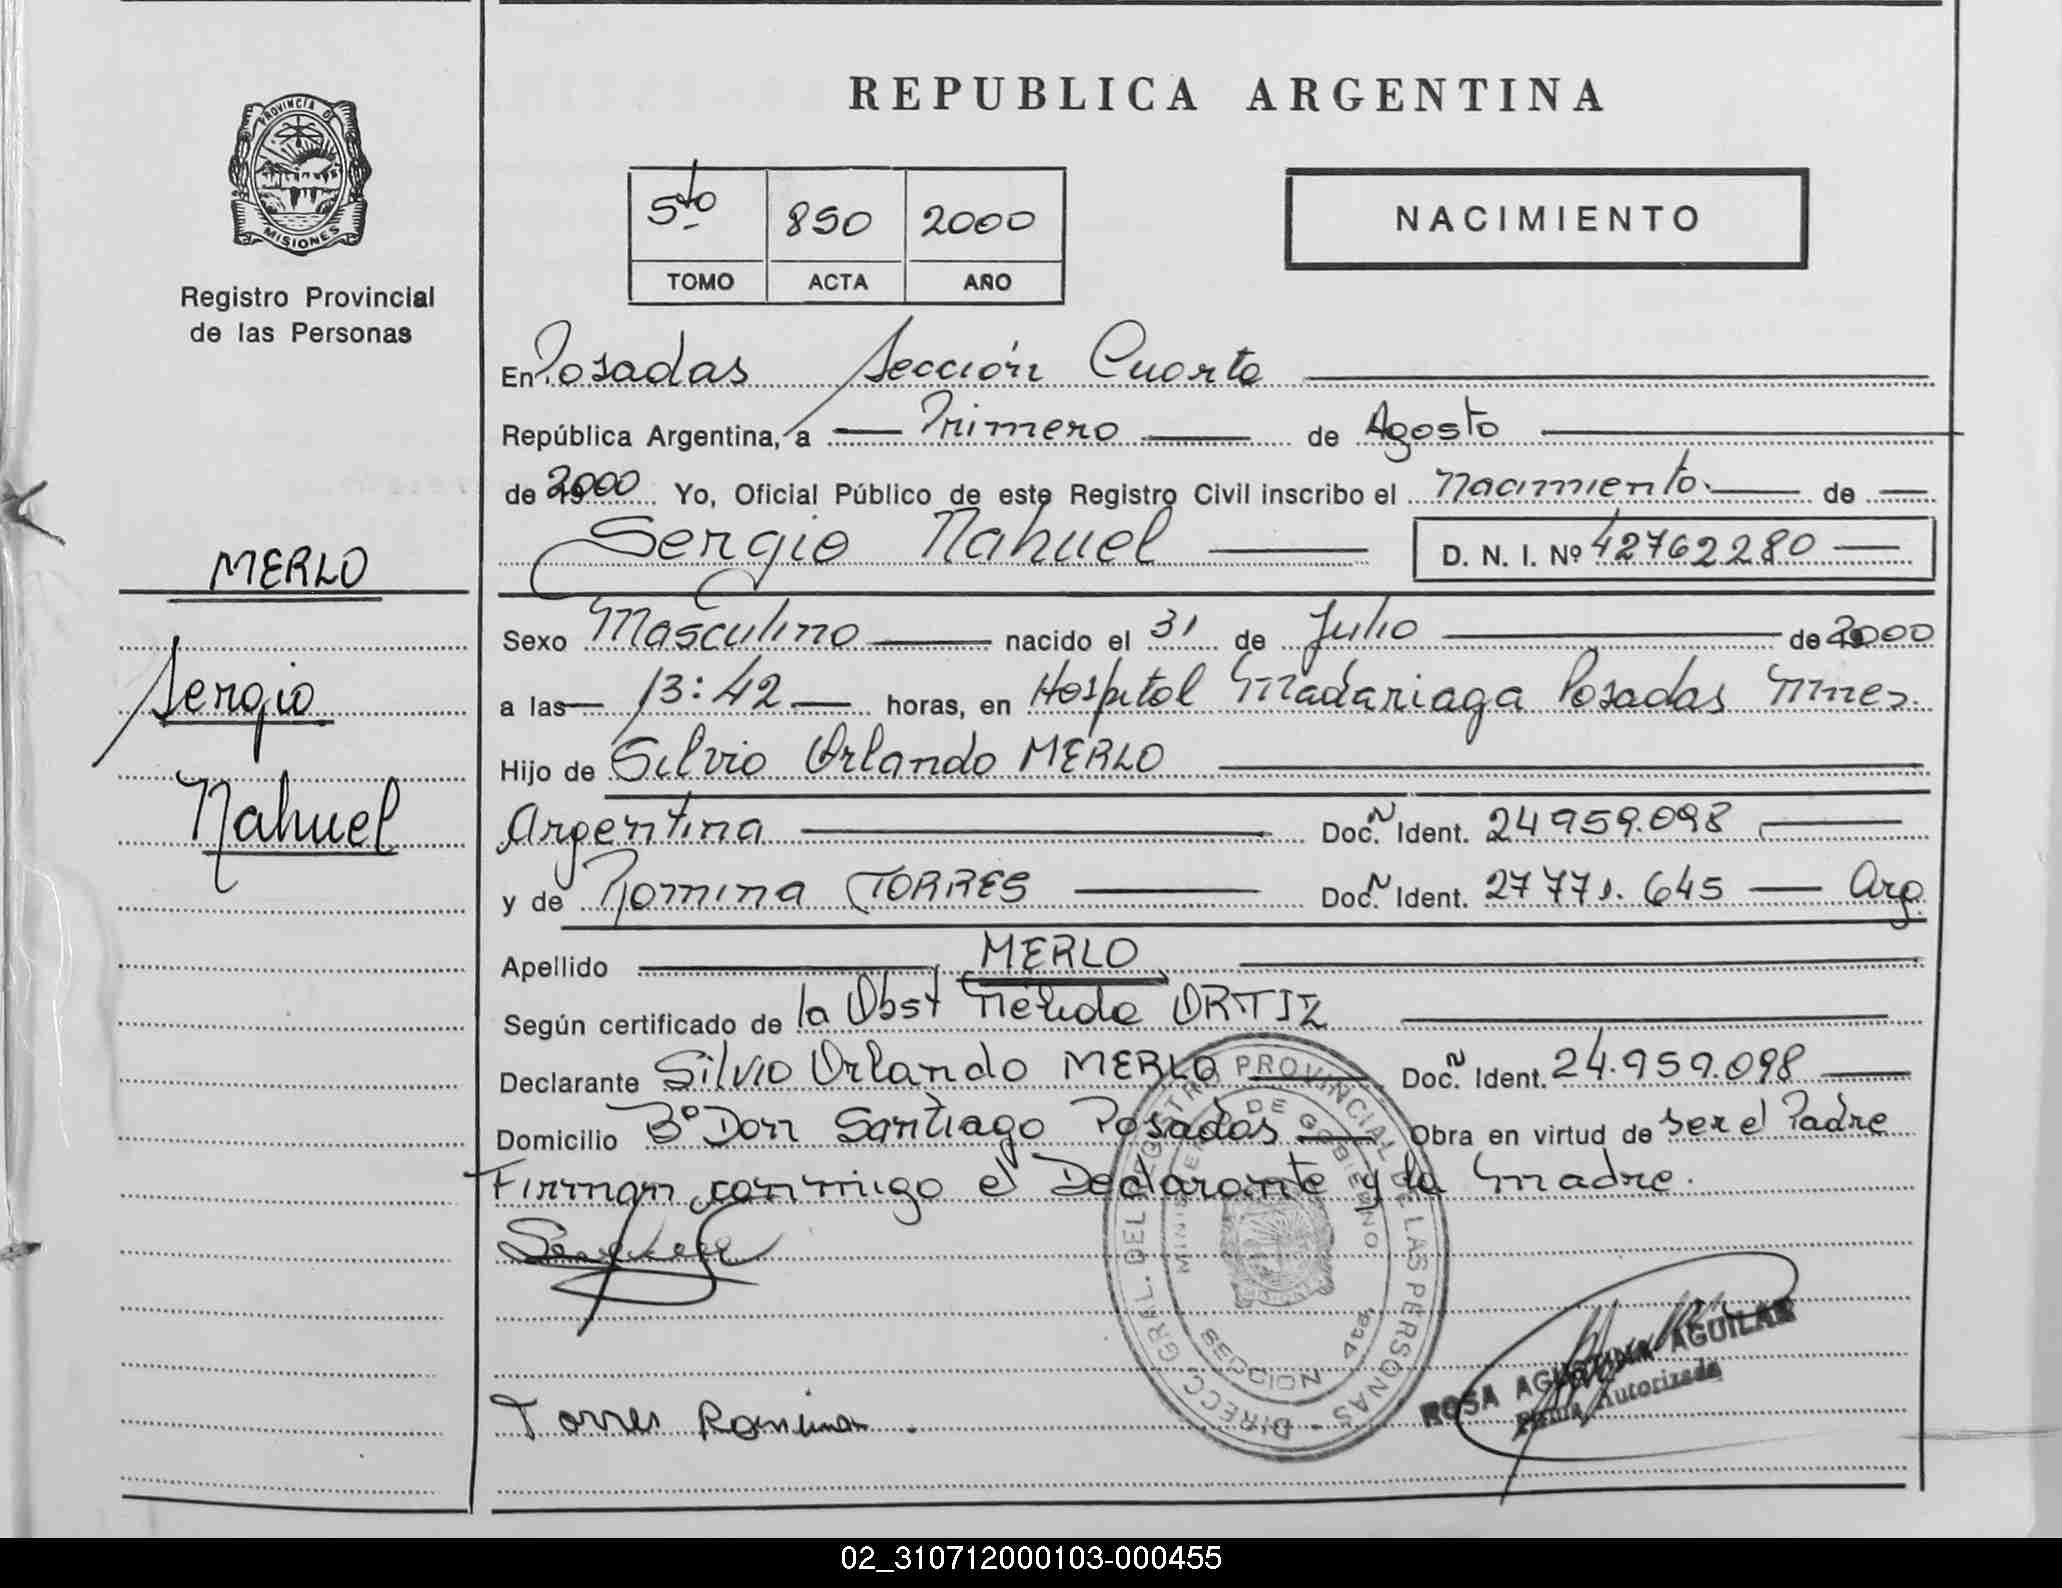 REPUBLICA ARGENTINA
PROVINCIA DE
MISIONES
Registro Provincial
de las Personas
5to 850 2000
TOMO ACTA AÑO
NACIMIENTO
En Posadas Sección Cuarta
República Argentina, a Primero de Agosto
de 2000 Yo, Oficial Público de este Registro Civil inscribo el Nacimiento de
Sergio Nahuel D. N. I. Nº 42762280
MERLO
Sergio
Nahuel
Sexo Masculino nacido el 31 de Julio de 2000
a las 13:42 horas, en Hospital Madariaga Posadas Mnes.
Hijo de Silvio Orlando MERLO
Argentina Doc. Ident. 24959.098
y de Romina TORRES Doc. Ident. 27771.645 Arg.
Apellido MERLO
Según certificado de la Obst Nélida ORTIZ
Declarante Silvio Orlando MERLO Doc. Ident. 24.959.098
Domicilio Bº Don Santiago Posadas Obra en virtud de ser el Padre
Firman conmigo el Declarante y la Madre.
DIRECC. GRAL. DEL REGISTRO PROVINCIAL DE LAS PERSONAS
MINISTERIO DE GOBIERNO
SECCION 4ta.
ROSA AGUSTINA AGUILAR
Firma Autorizada
Torres Romina.
02_310712000103-000455